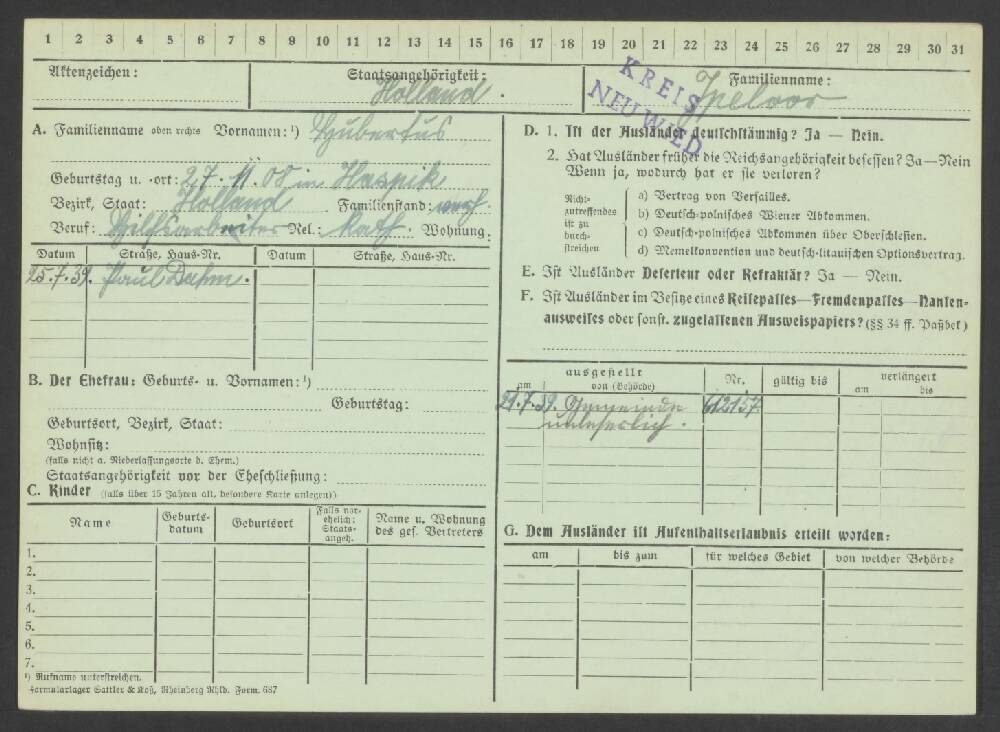 1 2 3 4 5 6 7 8 9 10 11 12 13 14 15 16 17 18 19 20 21 22 23 24 25 26 27 28 29 30 31
Aktenzeichen: Staatsangehörigkeit: Familienname:
Holland.
KREIS
NEUWIED
A. Familienname oben rechts Vornamen:¹) Hubertus
Geburtstag u. -ort: 27.11.08 in Haspik
Bezirk, Staat: Holland Familienstand: verh.
Beruf: Hilfsarbeiter Rel.: kath. Wohnung:
Datum Straße, Haus-Nr. Datum Straße, Haus-Nr.
25.7.39. Paul Dahm.
B. Der Ehefrau: Geburts- u. Vornamen:¹)
Geburtstag:
Geburtsort, Bezirk, Staat:
Wohnsitz:
(falls nicht a. Niederlassungsorte d. Ehem.)
Staatsangehörigkeit vor der Eheschließung:
C. Kinder (falls über 15 Jahren alt, besondere Karte anlegen))
Name Geburts-datum Geburtsort Falls vor-ehelich: Staats-angeh. Name u. Wohnung des ges. Vertreters
1.
2.
3.
4.
5.
6.
7.
¹) Rufname unterstreichen.
Formularlager Sattler & Koß, Rheinberg Rhld. Form. 687
D. 1. Ist der Ausländer deutschstämmig? Ja — Nein.
2. Hat Ausländer früher die Reichsangehörigkeit besessen? Ja—Nein
Wenn ja, wodurch hat er sie verloren?
Nicht-zutreffendes ist zu durch-streichen
a) Vertrag von Versailles.
b) Deutsch-polnisches Wiener Abkommen.
c) Deutsch-polnisches Abkommen über Oberschlesien.
d) Memelkonvention und deutsch-litauischen Optionsvertrag.
E. Ist Ausländer Deserteur oder Refraktär? Ja — Nein.
F. Ist Ausländer im Besitze eines Reisepasses—Fremdenpasses—Nansen-
ausweises oder sonst. zugelassenen Ausweispapiers? (§§ 34 ff. Paßbek.)
ausgestellt Nr. gültig bis verlängert
am von (Behörde) am bis
21.7.39. Gemeinde 612157.
unleserlich.
G. Dem Ausländer ist Aufenthaltserlaubnis erteilt worden:
am bis zum für welches Gebiet von welcher Behörde